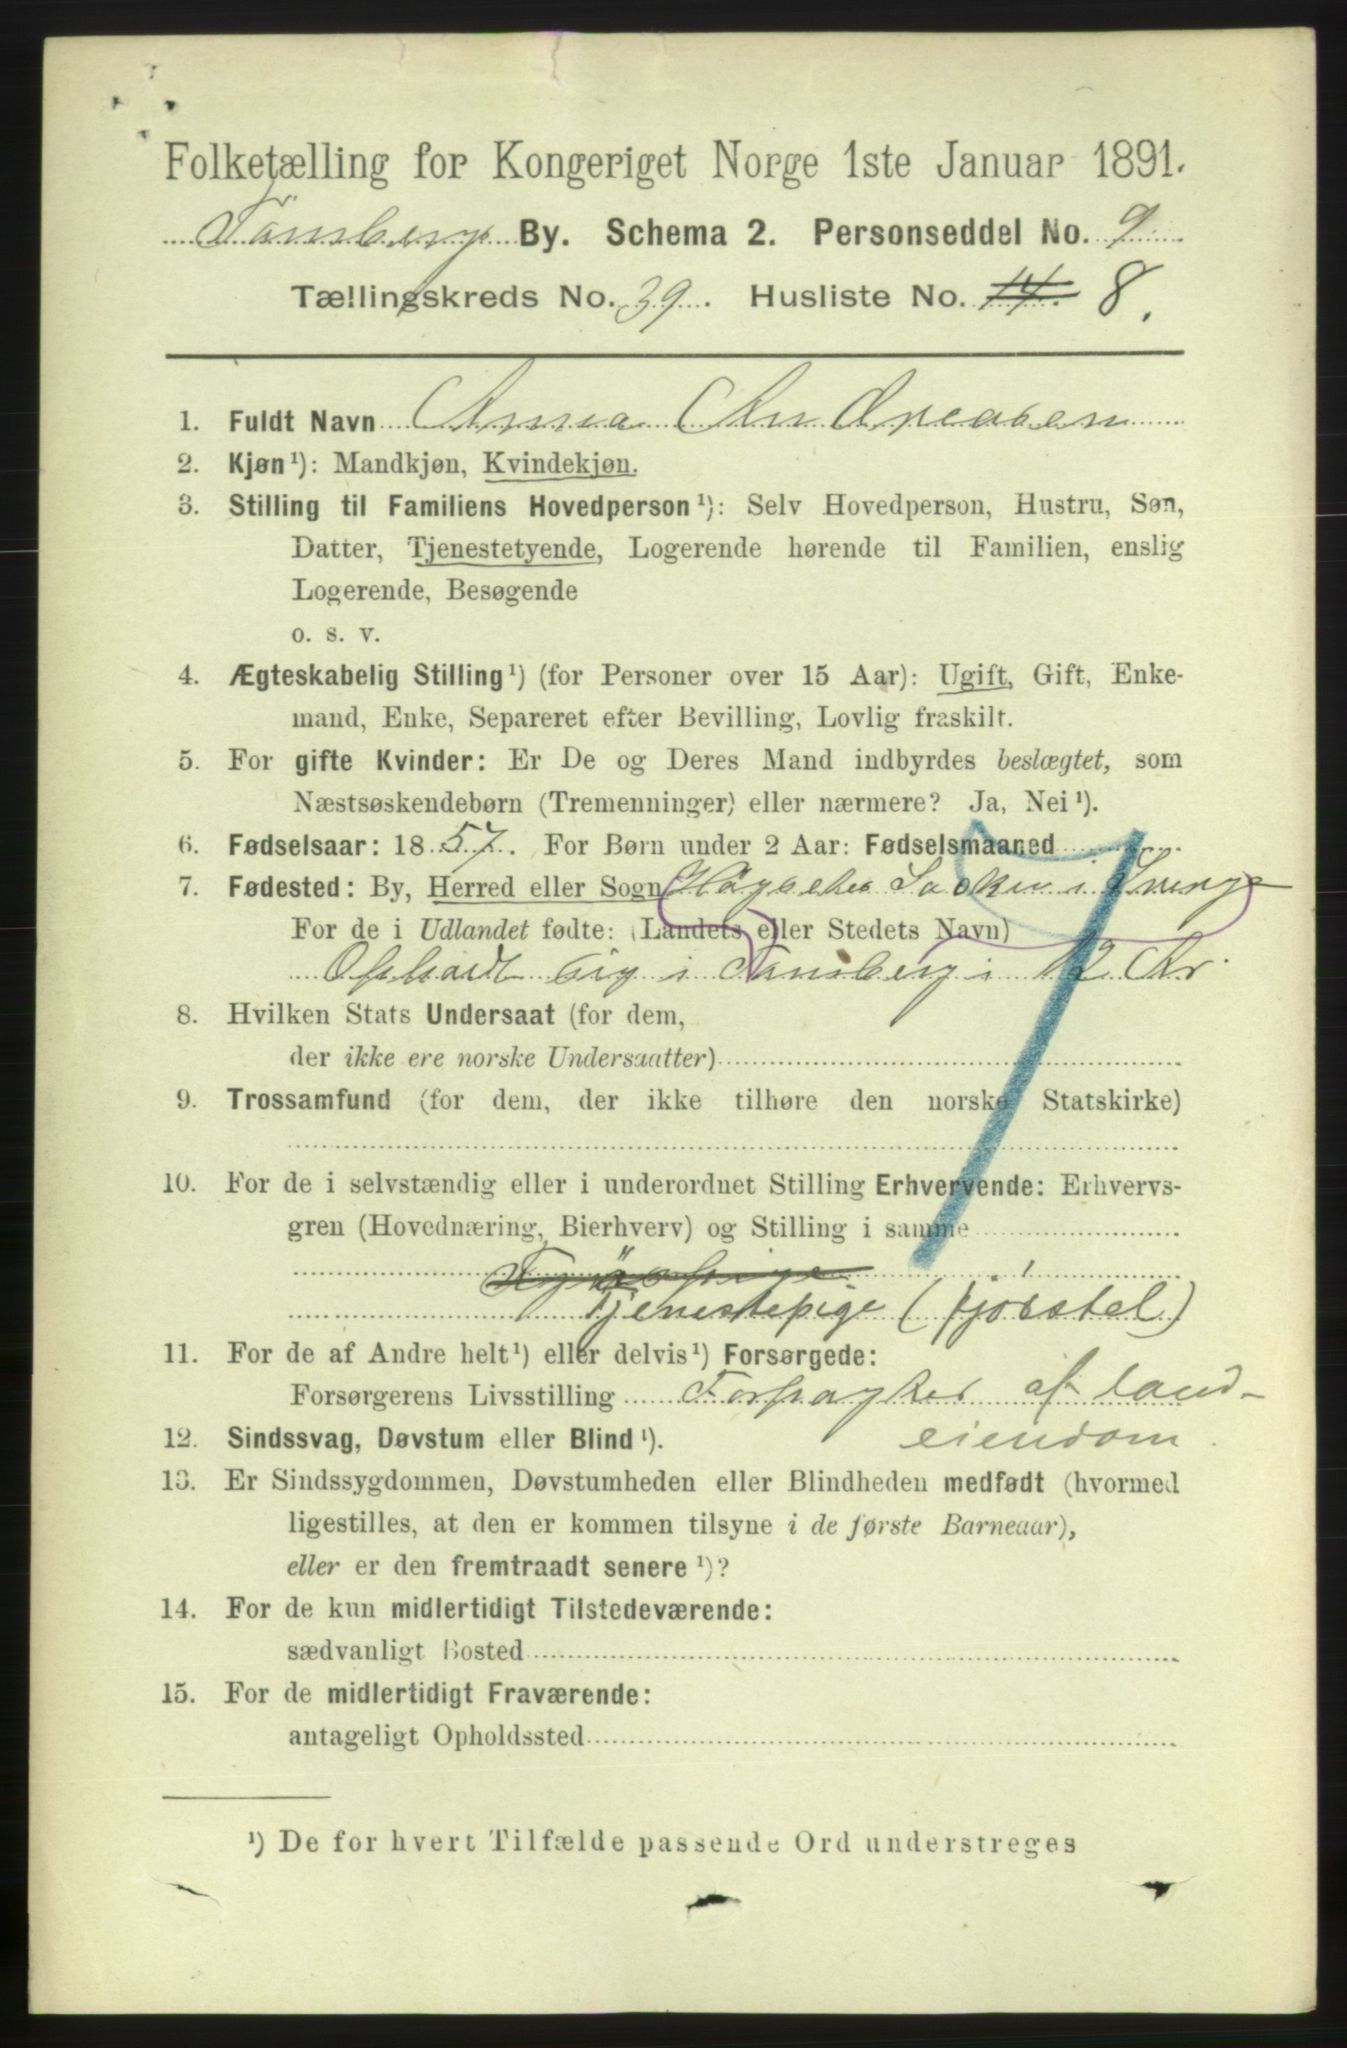 Folketælling for Kongeriget Norge 1ste Januar 1891.
Tönsberg By. Schema 2. Personseddel No. 9
Tællingskreds No. 39. Husliste No. 14. 8.
1. Fuldt Navn Anna Andreasen
2. Kjøn ¹): Mandkjøn, Kvindekjøn.
3. Stilling til Familiens Hovedperson ¹): Selv Hovedperson, Hustru, Søn,
Datter, Tjenestetyende, Logerende hørende til Familien, enslig
Logerende, Besøgende
o. s. v.
4. Ægteskabelig Stilling ¹) (for Personer over 15 Aar): Ugift, Gift, Enke-
mand, Enke, Separeret efter Bevilling, Lovlig fraskilt.
5. For gifte Kvinder: Er De og Deres Mand indbyrdes beslægtet, som
Næstsøskendebørn (Tremenninger) eller nærmere? Ja, Nei ¹).
6. Fødselsaar: 1857. For Børn under 2 Aar: Fødselsmaaned
7. Fødested: By, Herred eller Sogn Socken i
For de i Udlandet fødte: (Landets eller Stedets Navn)
Ophold sig i Tönsberg i 12 Ar.
8. Hvilken Stats Undersaat (for dem,
der ikke ere norske Undersaatter)
9. Trossamfund (for dem, der ikke tilhøre den norske Statskirke)
10. For de i selvstændig eller i underordnet Stilling Erhvervende: Erhvervs-
gren (Hovednæring, Bierhverv) og Stilling i samme
Tjenestepige (fjøsstel)
11. For de af Andre helt ¹) eller delvis ¹) Forsørgede:
Forsørgerens Livsstilling Forpagter af land-
eiendom
12. Sindssvag, Døvstum eller Blind ¹).
13. Er Sindssygdommen, Døvstumheden eller Blindheden medfødt (hvormed
ligestilles, at den er kommen tilsyne i de første Barneaar),
eller er den fremtraadt senere ¹)?
14. For de kun midlertidigt Tilstedeværende:
sædvanligt Bosted
15. For de midlertidigt Fraværende:
antageligt Opholdssted
¹) De for hvert Tilfælde passende Ord understreges